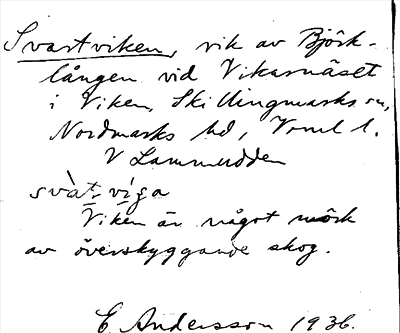 Svartviken, vik av Björk-
lången vid Vikarnäset
i Viken, Skillingmarks sn,
Nordmarks hd, Vrml l.
V Lammudden
svàt,viga
Viken är något mörk
av överskyggande skog.
E Andersson 1936.